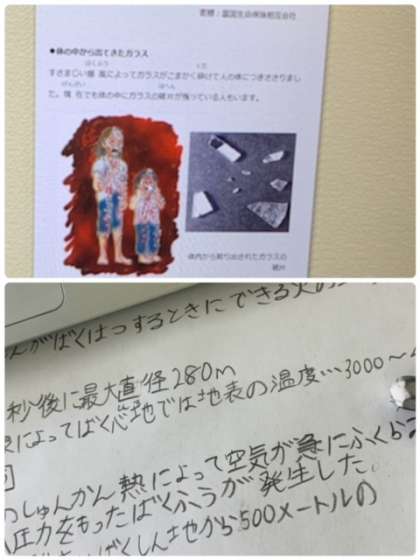 寄贈:富国生命保険相互会社
●体の中から出てきたガラス
すさまじい爆風によってガラスがこまかく砕けて人の体につきささりまし
た。現在でも体の中にガラスの破片が残っている人もいます。
体内から取り出されたガラスの
破片
がばくはつするときにできる火の
秒後に最大直径280m
によってばく心地では地表の温度…3000〜
しゅんかん熱によって空気が急にふくらつ
圧力をもったばくふうが発生した。
ばくしん地から500メートルの